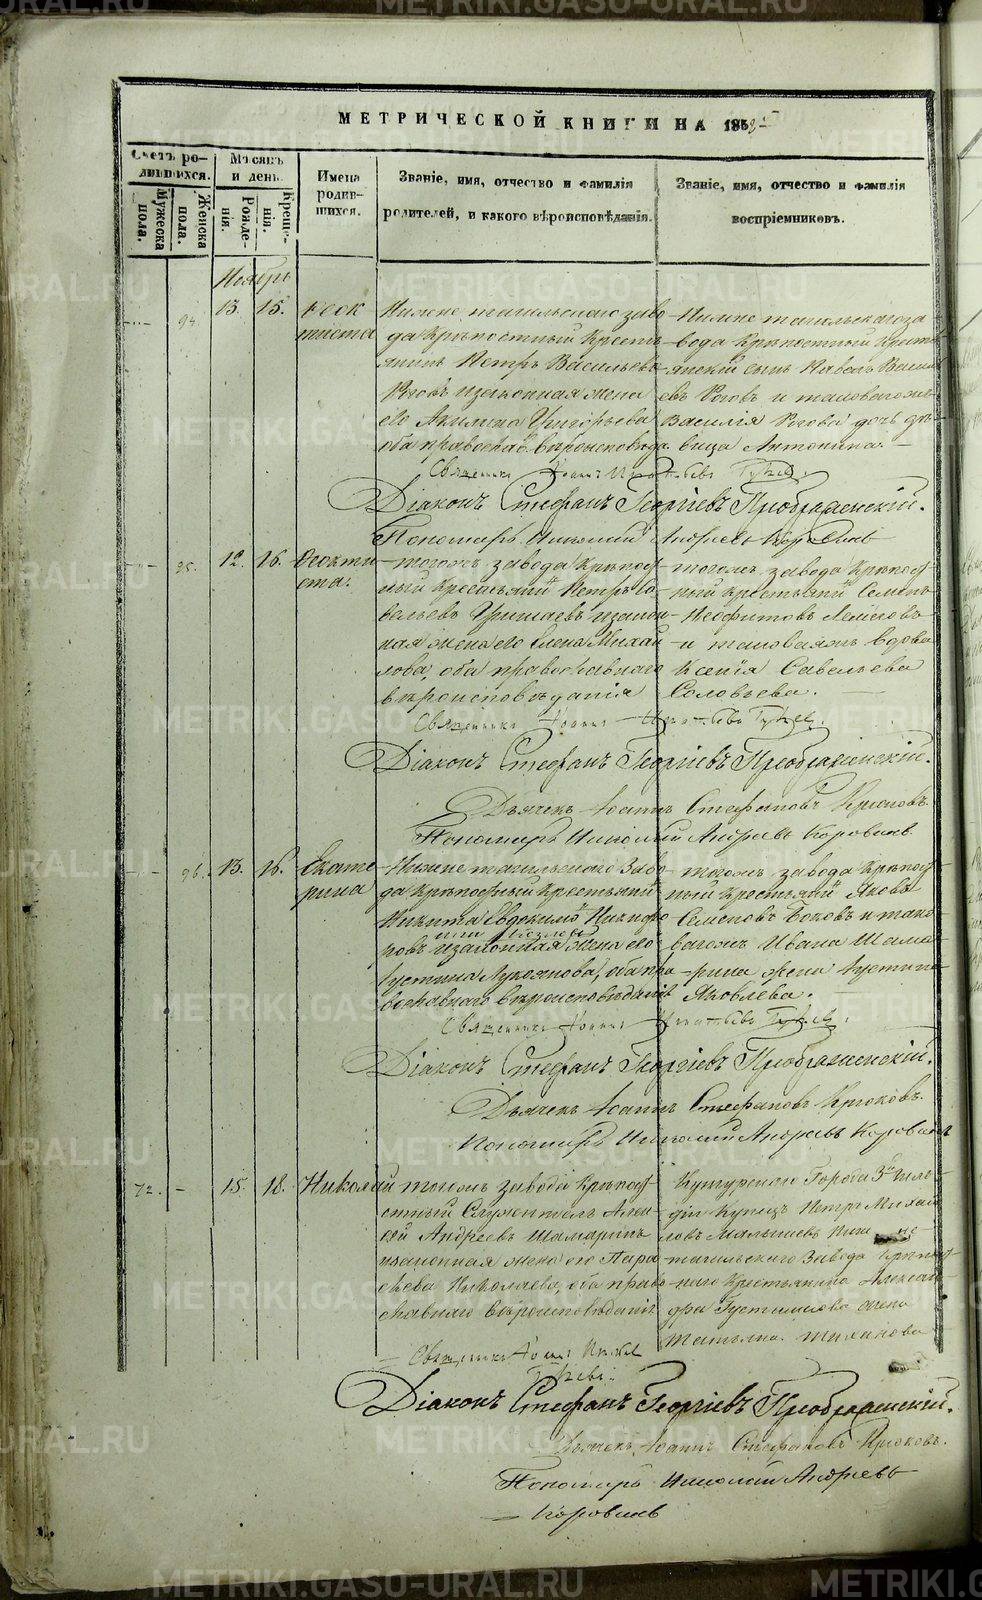 МЕТРИЧЕСКОЙ КНИГИ НА 185
Счетъ родившихся.
Мужеска пола.
Женска пола.
Мѣсяцъ и день.
Рожденія.
Крещенія.
Имена родившихся.
Званіе, имя, отчество и фамилія
родителей, и какого вѣроисповѣданія.
Званіе, имя, отчество и фамилія
воспріемниковъ.
Ноябрь
94. 13. 15. Феок
тиста
Нижне тагильскаго заво
да Крѣпостный Кресть
янинъ Петръ Васильевъ
Роговъ и законная жена
его Акилина Григорьева
оба православ. вѣроисповѣда.
Нижне тагильскаго за
вода Крѣпостный Крестъ
янскій сынъ Павелъ Василь
евъ Роговъ и таковагожъ
Василія Рогова дочь дѣ
вица Антонина.
Священникъ Іоаннъ
Діаконъ Стефанъ Георгіевъ Преображенскій.
Пономарь Николай Андреевъ Коровинъ
95. 12. 16. Феокти
ста.
тогожъ завода Крѣпост
ный Крестьянинъ Петръ Са
вельевъ и закон
ная жена его Елена Михай
лова, оба православнаго
вѣроисповѣданія
тогожъ завода Крѣпост
ный крестьянинъ Семенъ
Неофитовъ
и таковаяжъ вдова
Ксенія Савельева
Соловьева.
Священникъ Іоаннъ
Діаконъ Стефанъ Георгіевъ Преображенскій.
Дьячекъ Іоаннъ Стефановъ Крюковъ.
Пономарь Николай Андреевъ Коровинъ
96. 13. 16. Екате
рина
Нижне тагильскаго Заво
да Крѣпостный Крестьянинъ
Никита Евдокимовъ Никифо
ровъ и законная жена его
Устина Лукоянова, оба пра
вославнаго вѣроисповѣданія
тогожъ завода Крѣпост
ный крестьянинъ Яковъ
Семеновъ Боковъ и тако
вагожъ Ивана Шама
рина жена Устинья
Яковлева.
Священникъ Іоаннъ
Діаконъ Стефанъ Георгіевъ Преображенскій.
Дьячекъ Іоаннъ Стефановъ Крюковъ.
Пономарь Николай Андреевъ Коровинъ
72. - 15. 18. Николай
тогожъ завода Крѣпост
стный Служитель Алек
сѣй Андреевъ Шамаринъ
и законная жена его Пара
скева Николаева, оба право
славнаго вѣроисповѣданія
Кунгурскаго Города 3й гиль
діи Купецъ Петръ Михай
ловъ Малышевъ Нижне
тагильскаго Завода Крѣпост
наго Крестьянина Алексан
дра жена
Татьяна
Священникъ Іоаннъ
Діаконъ Стефанъ Георгіевъ Преображенскій.
Дьячекъ Іоаннъ Стефановъ Крюковъ.
Пономарь Николай Андреевъ
Коровинъ
METRIKI.GASO-URAL.RU